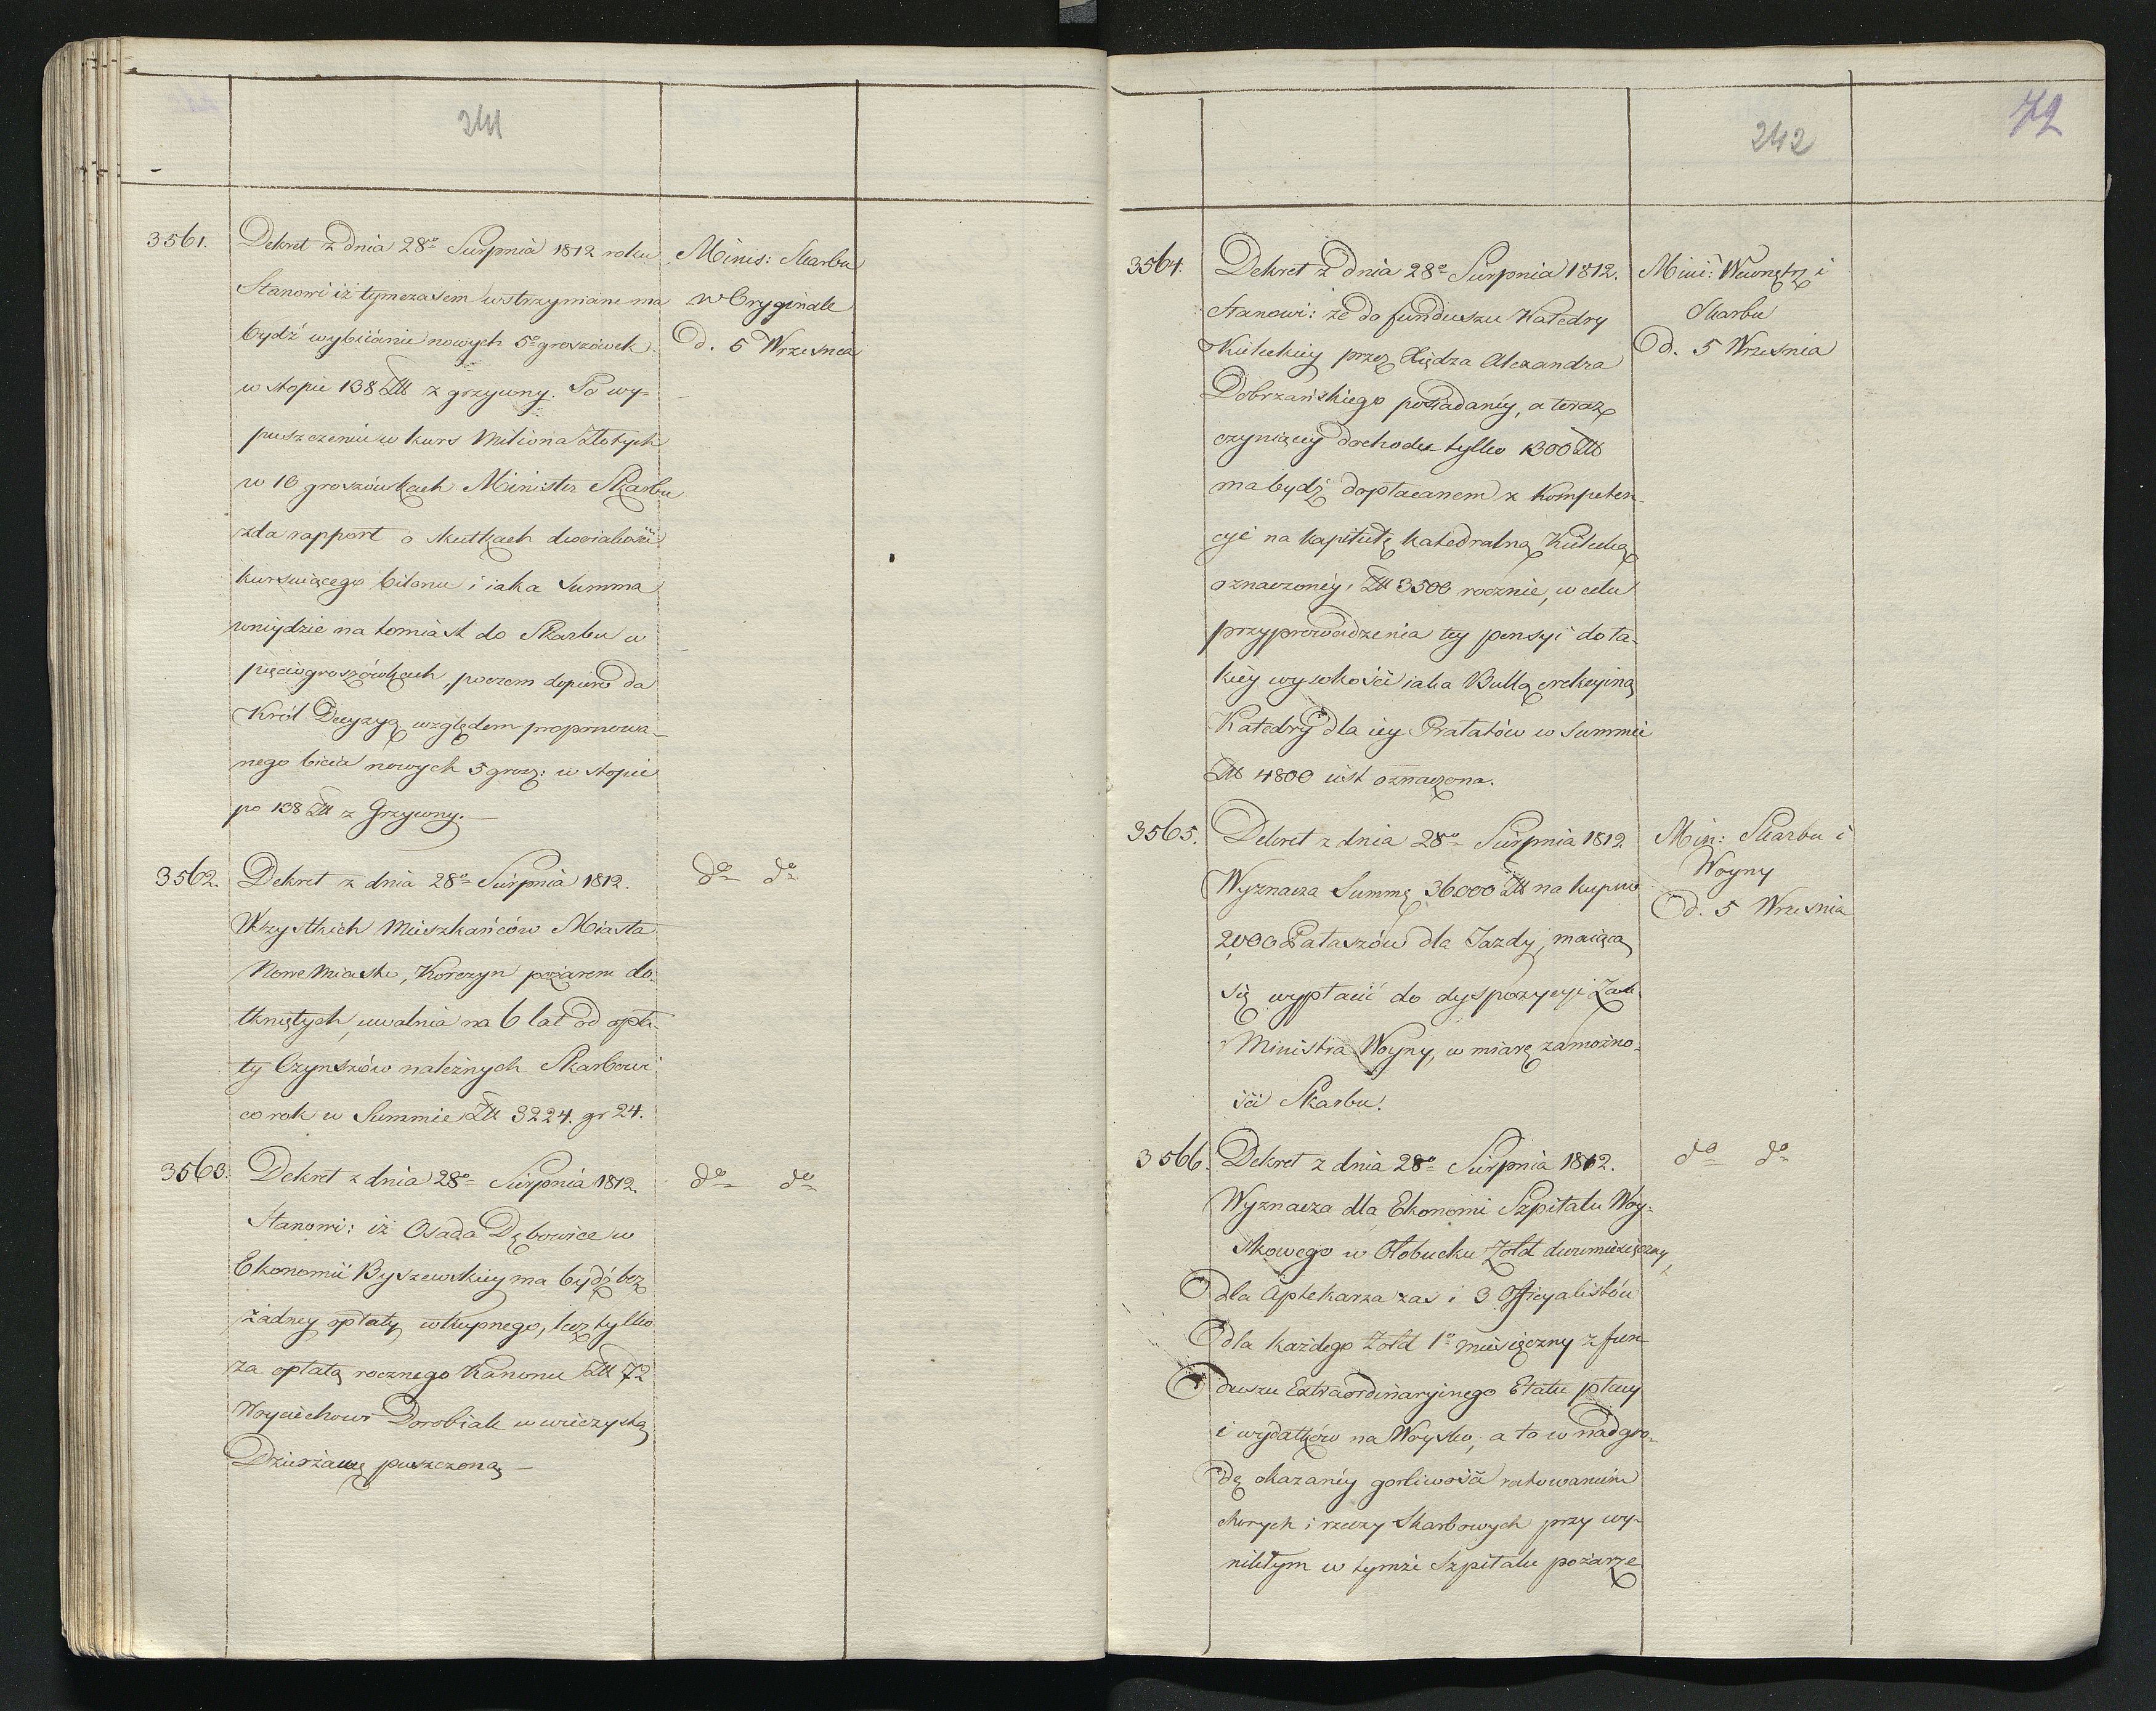 241
3561. Dekret z dnia 28o Sierpnia 1812 roku Minis: Skarbu
Stanowi iż tymczasem wstrzymane ma w Oryginale
bydź wybiianie nowych 5o groszówek d. 5 Wrzesnia
w stopie 138 Złł z grzywny. Po wy-
puszczeniu w kurs Miliona Złotych
w 10 groszówkach Minister Skarbu
zda rapport o skutkach dwoiakości
kursuiącego bilonu i iaka Summa
wniydzie na tomiast do Skarbu w
pięciogroszówkach, poczem dopiero da
Król Decyzyą względem proponowa-
nego bicia nowych 5 grosz: w stopie
po 138 Złł z Grzywny.
3562. Dekret z dnia 28o Sierpnia 1812. do do
Wszystkich Mieszkańców Miasta
Nowe Miasto, Korczyn pożarem do-
tkniętych, uwalnia na 6 lat od opła-
ty Czynszów należnych Skarbowi
co rok w Summie Złł 3224. gr 24.
3563. Dekret z dnia 28o Sierpnia 1812. do do
Stanowi: iż Osada Dębowice w
Ekonomii Byszewskiey ma bydź bez
żadney opłaty wkupnego, lecz tylko
za opłatą rocznego Kanonu Złł 72
Woyciechowi Dorobiale w wieczystą
Dzierżawę puszczoną
242
72
3564. Dekret z dnia 28o Sierpnia 1812. Mini: Wewnętrz i
Stanowi: że do funduszu Katedry Skarbu
Kieleckiey przez Xiędza Alexandra d. 5 Wrzesnia
Dobrzańskiego posiadaney, a teraz
czyniącey dochodu tylko 1300 Złł
ma bydź dopłacanem z Kompeten-
cyi na kapitułę katedralną Kielecką
oznaczoney, Złł 3500 rocznie, w celu
przyprowadzenia tey pensyi do ta-
kiey wysokości iaka Bullą erekcyiną
Katedry dla iey Prałatów w Summie
Złł 4800 iest oznaczona.
3565. Dekret z dnia 28o Sierpnia 1812 Min: Skarbu i
Wyznacza Summę 36000 Złł na kupno Woyny
2,000 Pałaszów dla Jazdy, maiącą d. 5 Wrzesnia
się wypłacić do dyspozycyi
Ministra Woyny, w miarę zamożno-
ści Skarbu.
3566. Dekret z dnia 28o Sierpnia 1812. do do
Wyznacza dla Ekonomi Szpitalu Woy-
skowego w Ołobucku żołd dwumiesięczny,
dla Aptekarza zas i 3 Officyalistów
dla każdego żołd 1o miesięczny z fun-
duszu Extraordinaryinego Etatu płacy
i wydatków na Woysko, a to w nadgro-
dę okazaney gorliwości ratowaniem
chorych i rzeczy Skarbowych przy wy-
nikłym w tymże Szpitalu pożarze